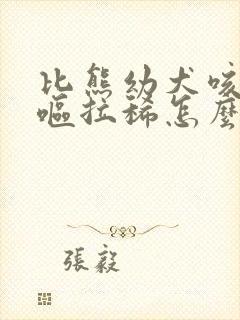 比熊幼犬咳
嘔拉稀怎麼
張毅